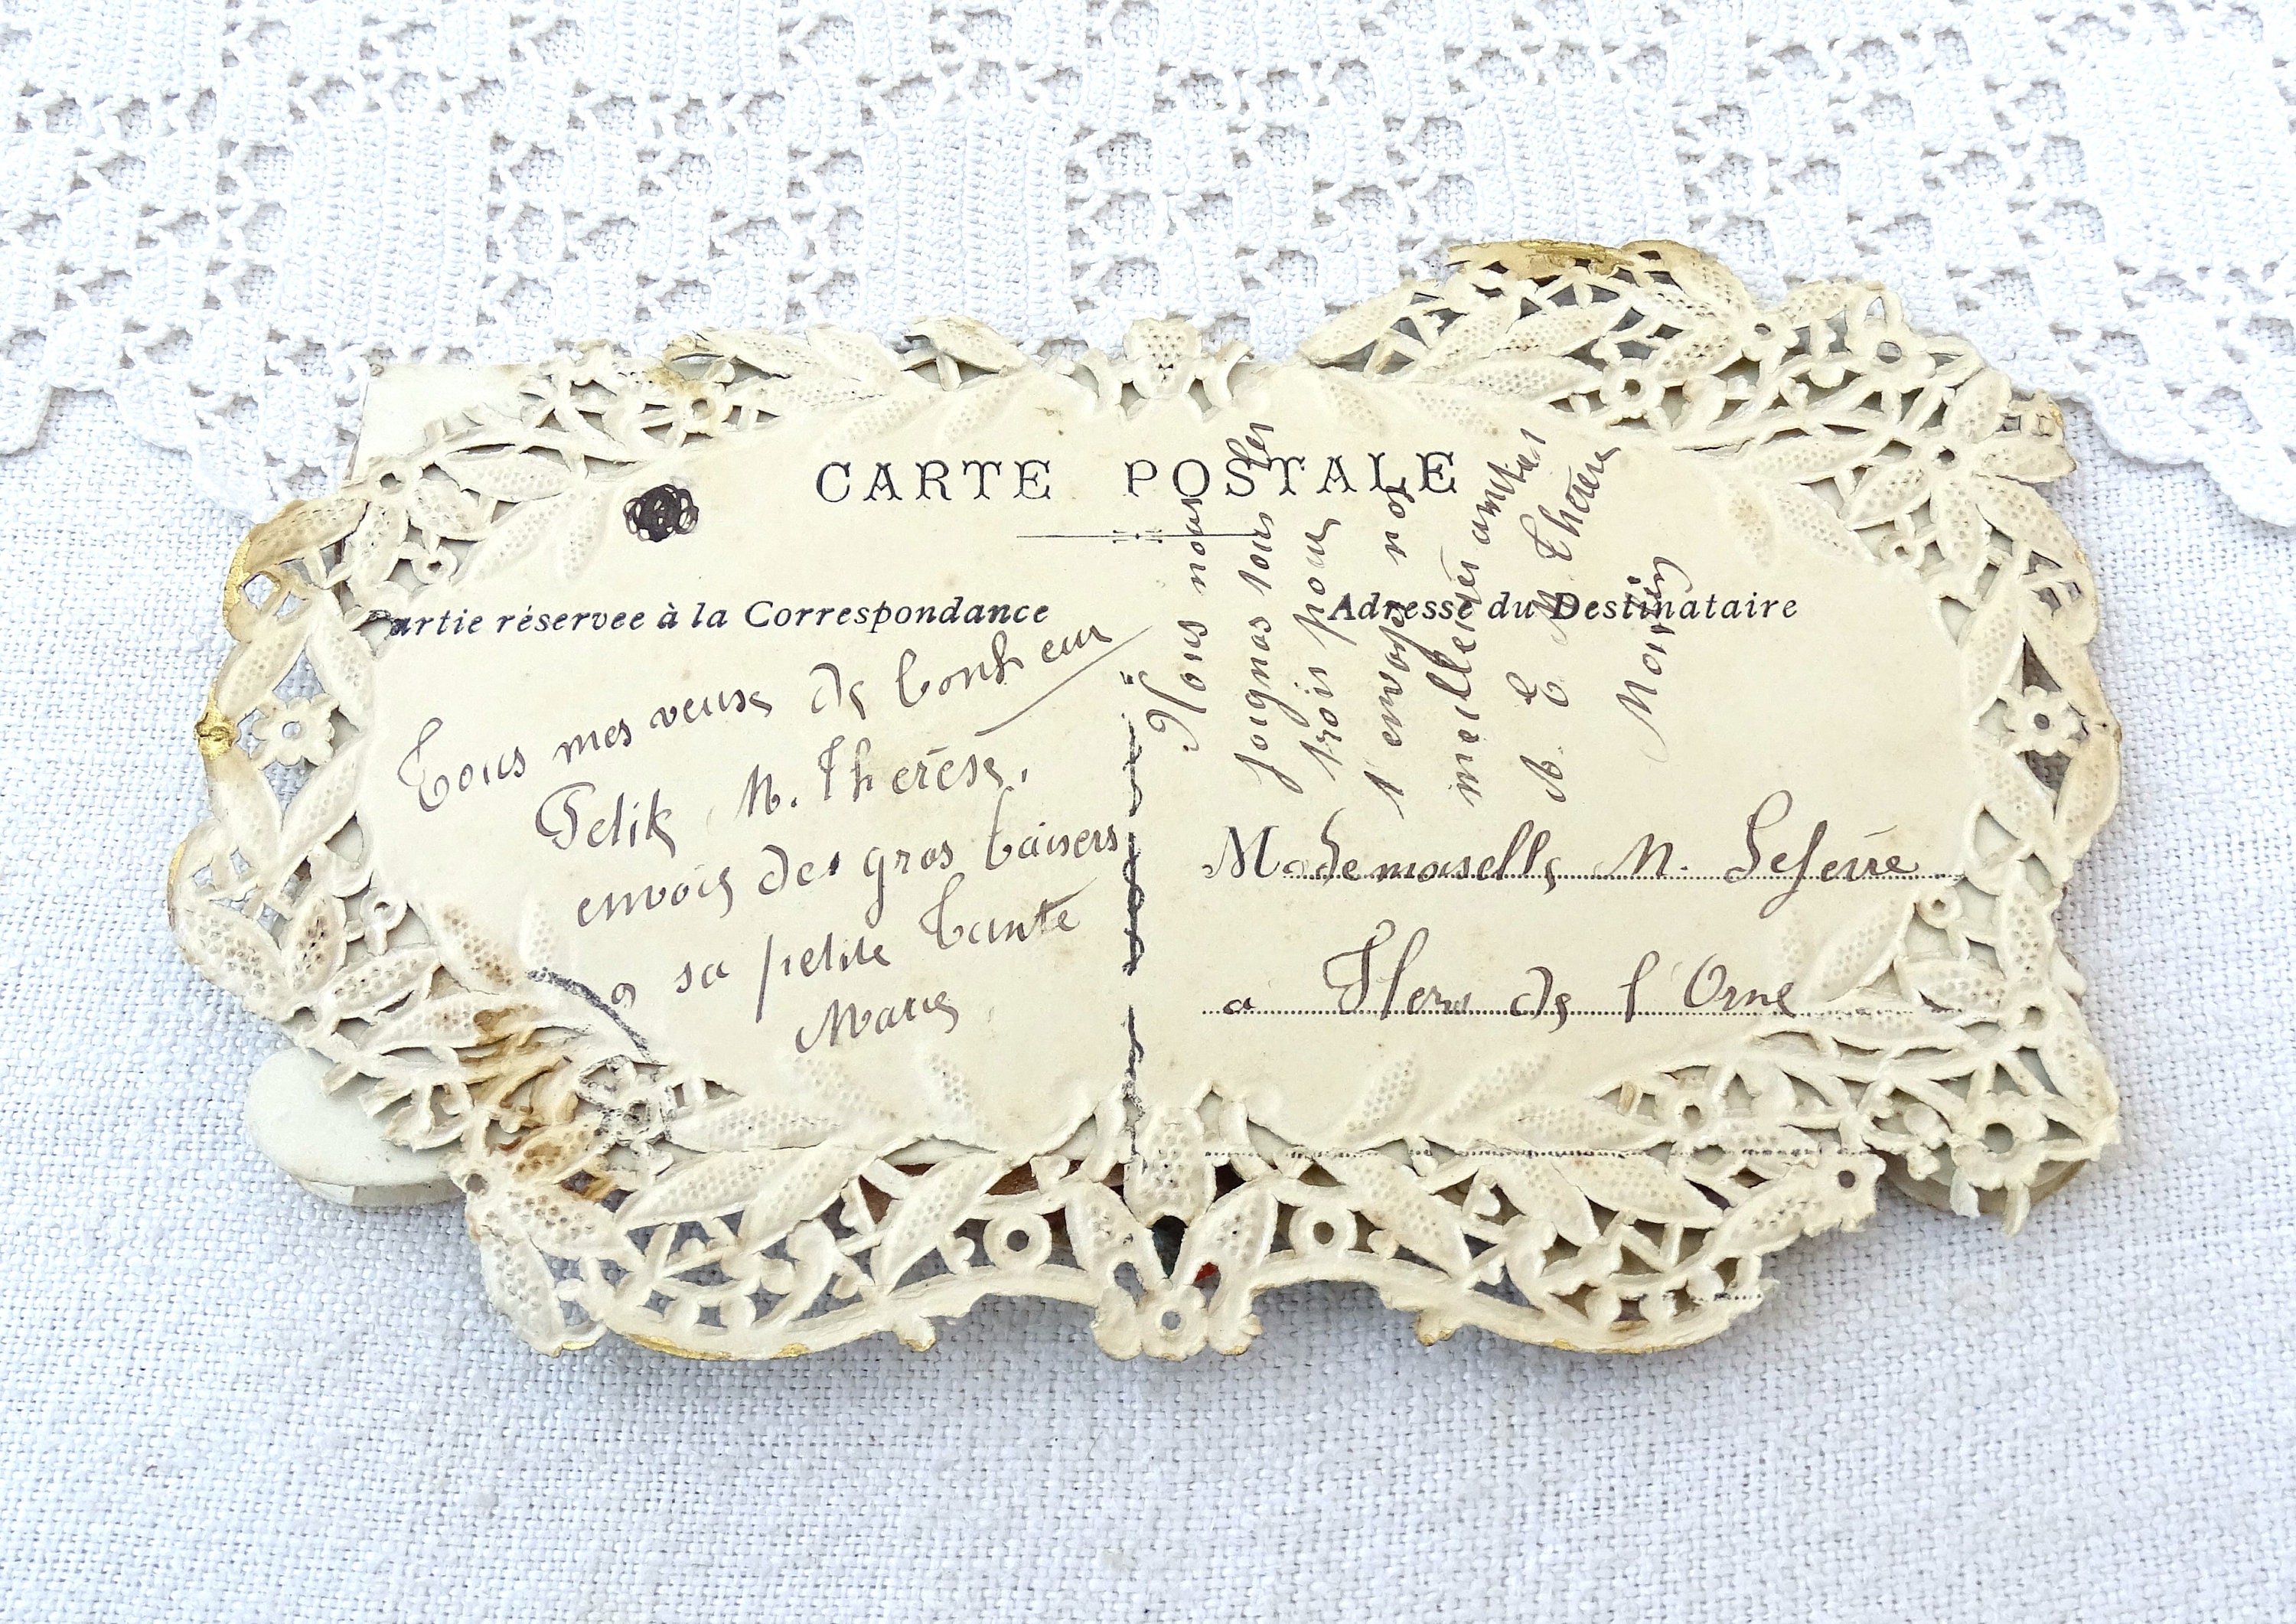 CARTE POSTALE
Partie réservée à la Correspondance
Adresse du Destinataire
Tous mes veuxs de bonheur
Petite M. Therèse.
envois des gros baisers
a sa petite Tante
Marie
Nous nous
joignos tous les
trois pour
t envoyer nos
meilleures amities
A. E. M. Therese
Mademoiselle M. Lefevre
a Flers de l'Orne